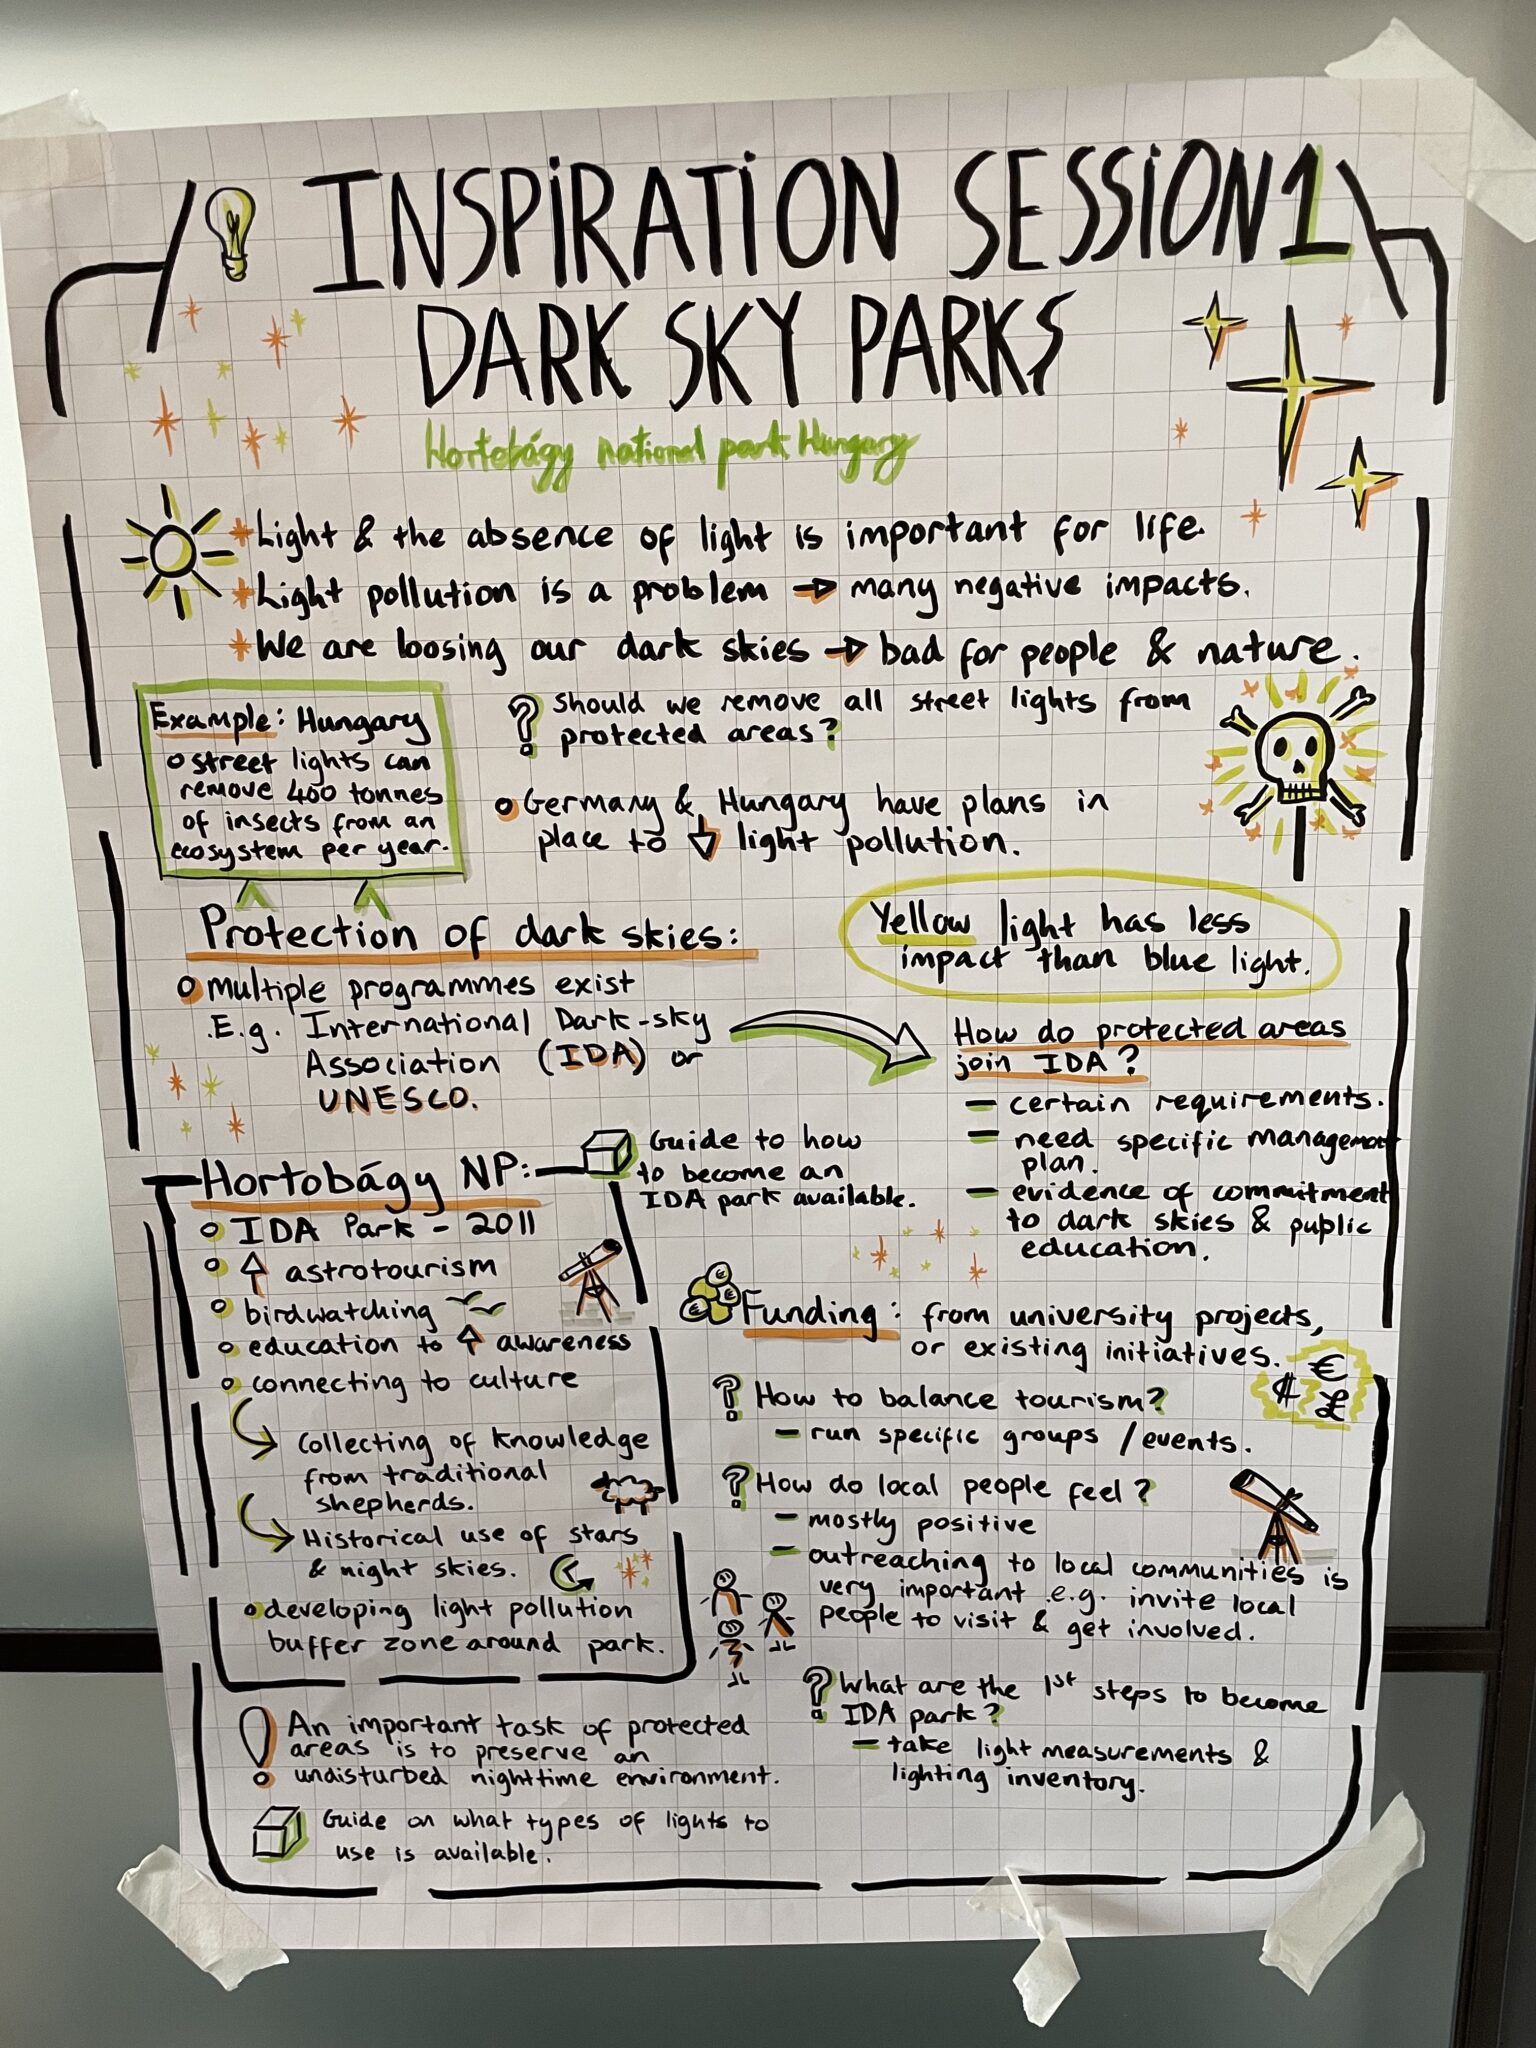 INSPIRATION SESSION 1
DARK SKY PARKS
Hortobágy national park Hungary
Light & the absence of light is important for life.
Light pollution is a problem → many negative impacts.
We are loosing our dark skies → bad for people & nature.
Example: Hungary
street lights can
remove 400 tonnes
of insects from an
ecosystem per year.
? Should we remove all street lights from
protected areas?
Germany & Hungary have plans in
place to ↓ light pollution.
Protection of dark skies:
multiple programmes exist
E.g. International Dark-sky
Association (IDA) or
UNESCO.
Yellow light has less
impact than blue light.
How do protected areas
join IDA?
- certain requirements.
- need specific management
plan.
- evidence of commitment
to dark skies & public
education.
Guide to how
to become an
IDA park available.
Hortobágy NP:
IDA Park - 2011
↑ astrotourism
birdwatching
education to ↑ awareness
connecting to culture
Collecting of knowledge
from traditional
shepherds.
Historical use of stars
& night skies.
developing light pollution
buffer zone around park.
Funding: from university projects,
or existing initiatives.
€
$ £
? How to balance tourism?
- run specific groups / events.
? How do local people feel?
- mostly positive
- outreaching to local communities is
very important e.g. invite local
people to visit & get involved.
? What are the 1st steps to become
IDA park?
- take light measurements &
lighting inventory.
! An important task of protected
areas is to preserve an
undisturbed nighttime environment.
Guide on what types of lights to
use is available.